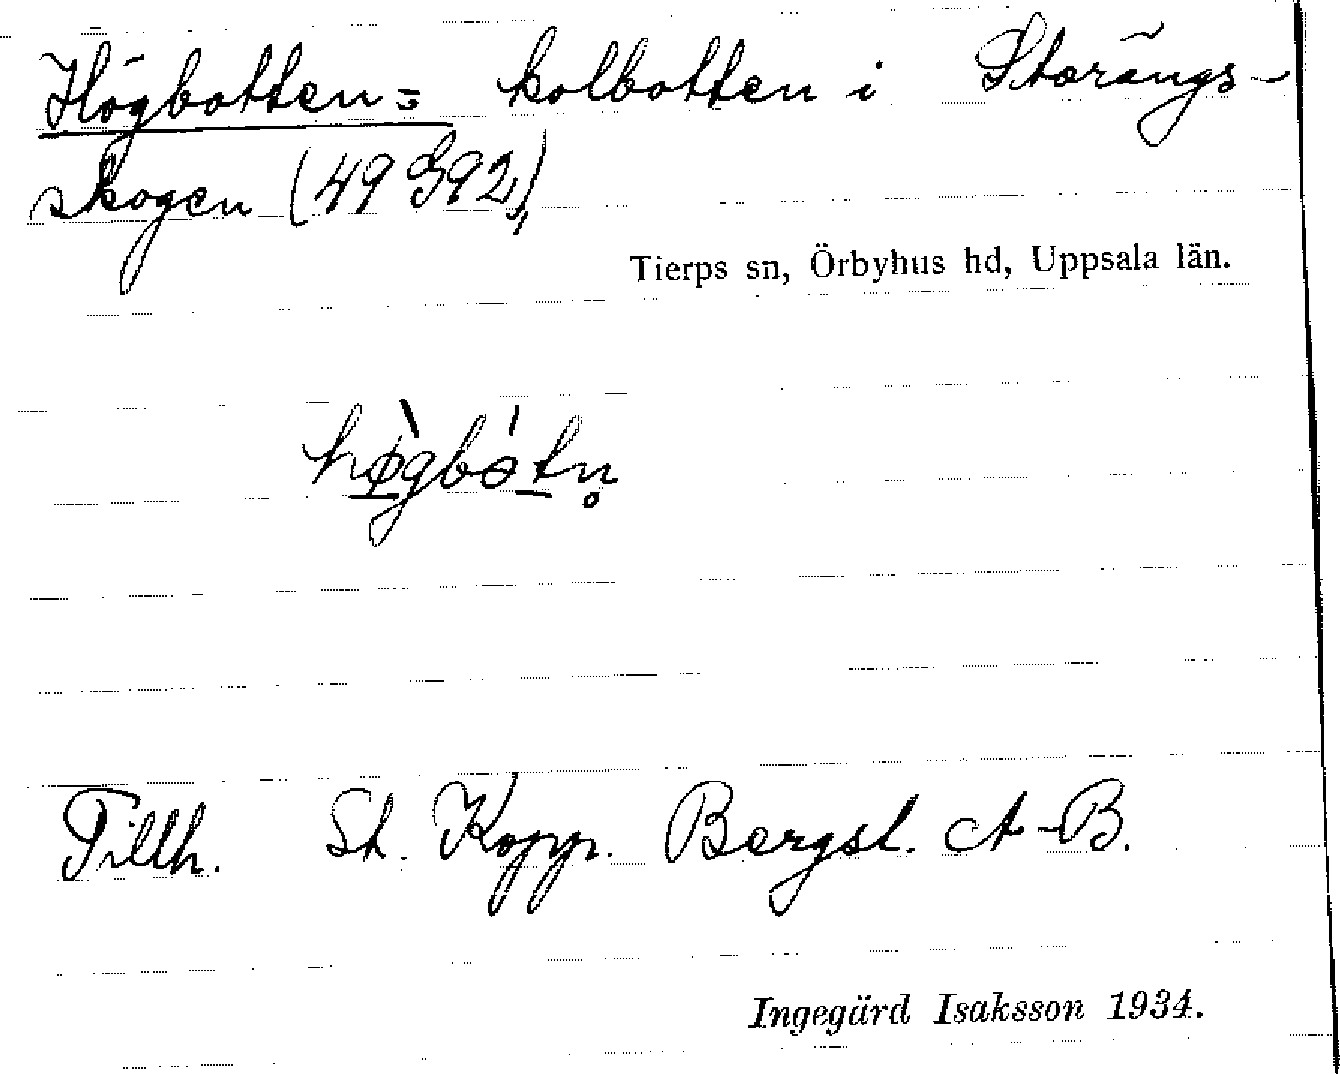 Högbotten = kolbotten i Storängs-
skogen (49 S92),
Tierps sn, Örbyhus hd, Uppsala län.
hø̀gbótn̥
Tillh. St. Kopp. Bergsl. A-B.
Ingegärd Isaksson 1934.